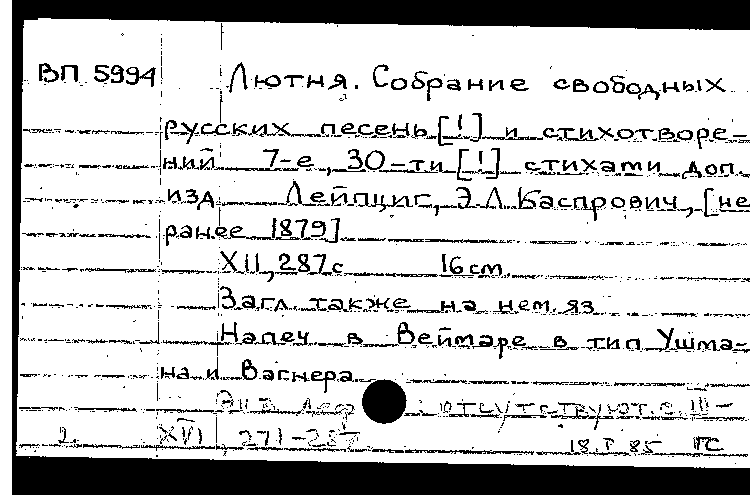 ВП 5994 Лютня. Собрание свободных
русских песень [!] и стихотворе-
ний 7-е, 30-ти [!] стихами доп.
изд Лейпциг, Э.Л.Каспрович, [не
ранее 1879]
XII, 287с 16см.
Загл. также на нем. яз
Напеч в Веймаре в тип Ушма-
на и Вагнера
Экз. деф : отсутствуют с. III-
2. XVI, 271-287 18.V 85 ГС